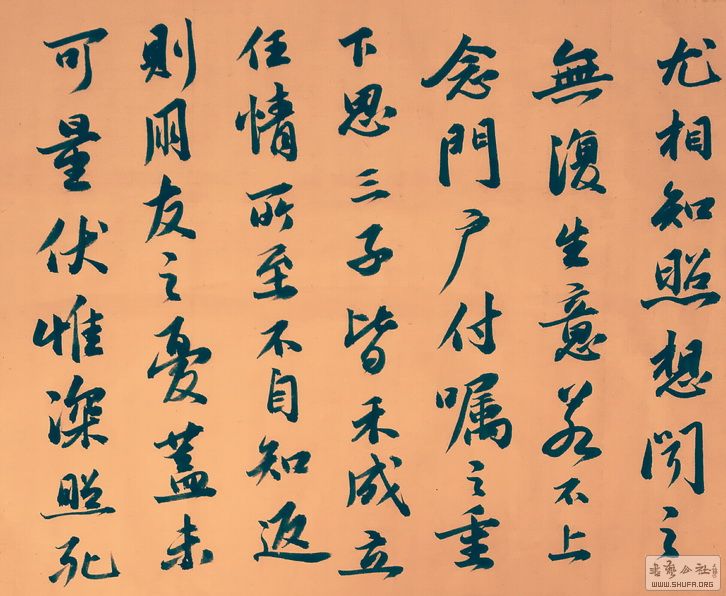 尤相知照想聞之
無復生意若不上
念門戶付嘱之重
下思三子皆未成立
任情所至不自知返
則朋友之憂蓋未
可量伏惟深照死
WWW.SHUFA.ORG